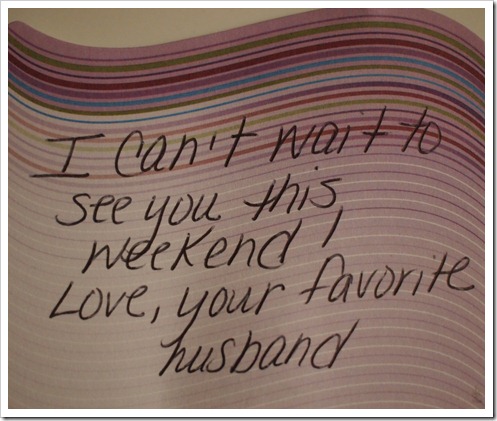 I can't wait to
see you this
weekend!
Love, your favorite
husband